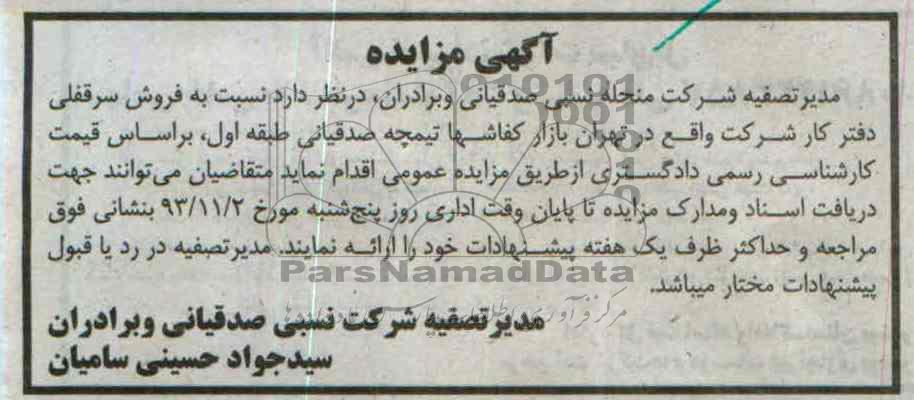 آگهی مزایده
مدیرتصفیه شرکت منحله نسبی صدقیانی وبرادران، درنظر دارد نسبت به فروش سرقفلی
دفتر کار شرکت واقع در تهران بازار کفاشها تیمچه صدقیانی طبقه اول، براساس قیمت
کارشناسی رسمی دادگستری ازطریق مزایده عمومی اقدام نماید متقاضیان می‌توانند جهت
دریافت اسناد ومدارک مزایده تا پایان وقت اداری روز پنج‌شنبه مورخ ۹۳/۱۱/۲ بنشانی فوق
مراجعه و حداکثر ظرف یک هفته پیشنهادات خود را ارائه نمایند. مدیرتصفیه در رد یا قبول
ParsNamadData
پیشنهادات مختار میباشد.
مدیرتصفیه شرکت نسبی صدقیانی وبرادران
سیدجواد حسینی سامیان